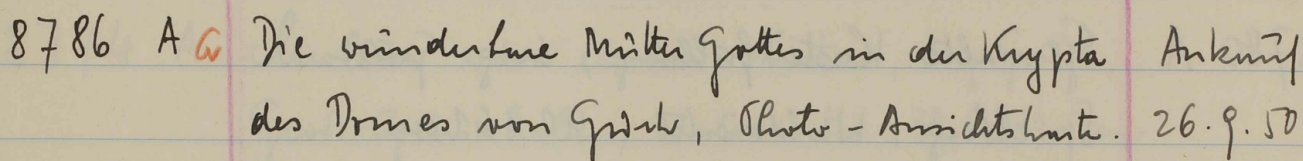 8786 A G Die wunderbare Mutter Gottes in der Krypta Ankauf
des Domes von Gurk, Photo-Ansichtskarte. 26.9.50